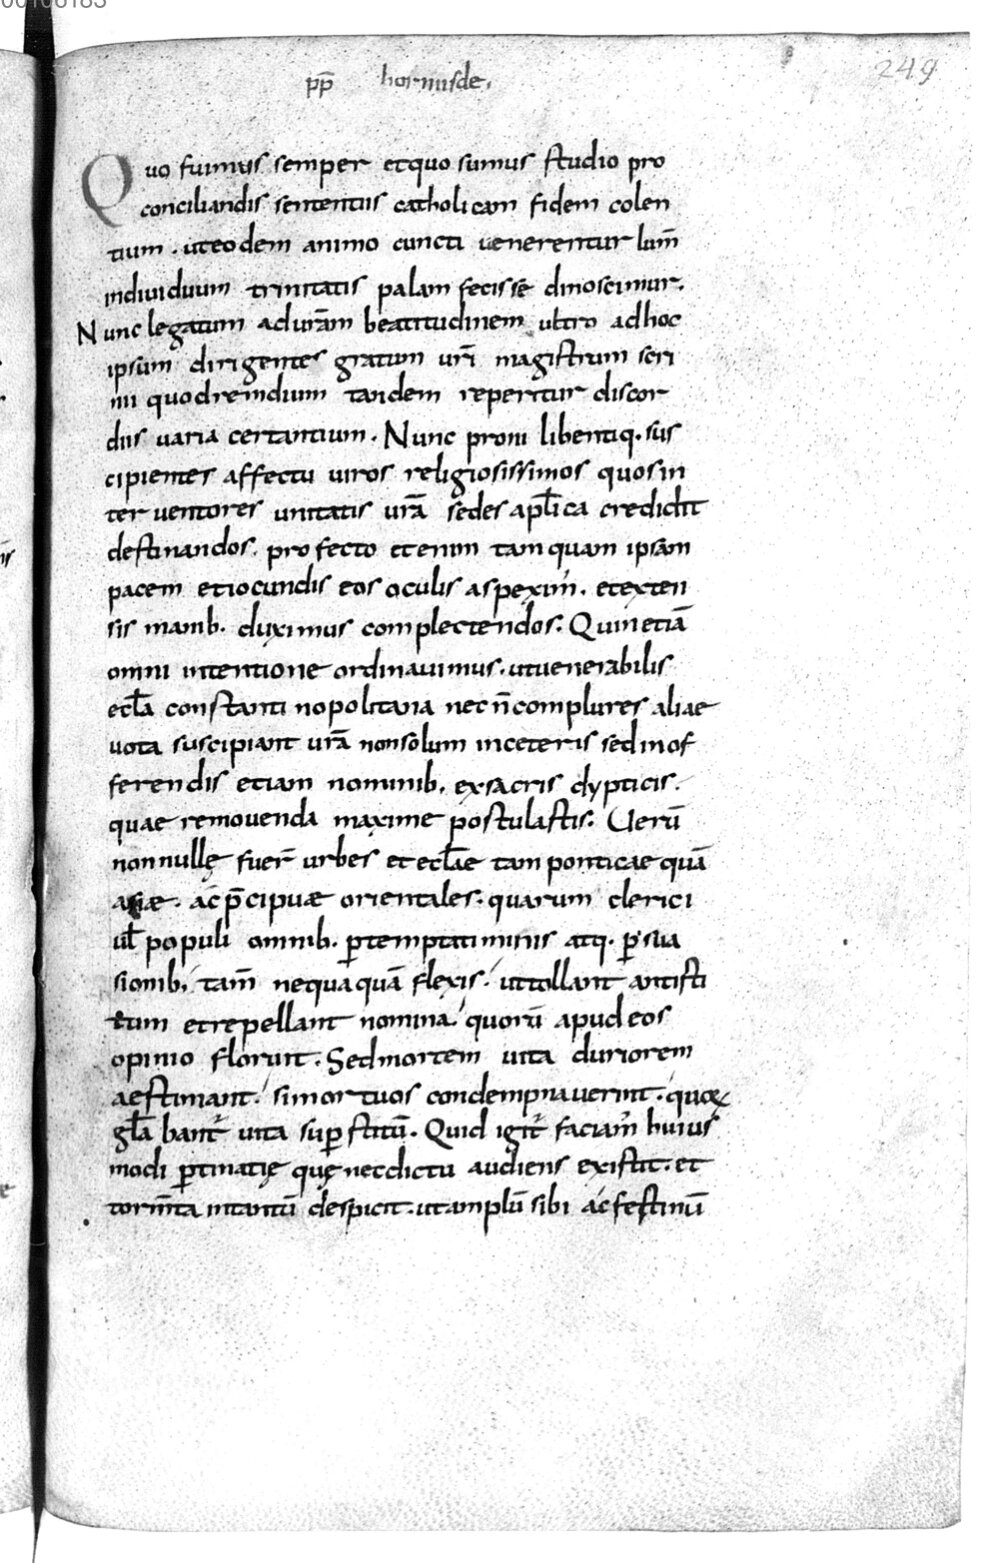 00106183
249
pp̄ hormisde.
Quo fuimus semper et quo sumus studio pro
conciliandis sententiis catholicam fidem colen
tium. ut eodem animo cuncti venerentur lum̄
individuum trinitatis palam fecisse dinoscimur.
Nunc legatum ad urām beatitudinem ultro ad hoc
ipsum dirigentes gratum urī magistrum scri
nii quod remdium tandem reperitur discor
diis varia certantium. Nunc proni libentiq. sus
cipientes affectu viros religiosissimos quos in
terventores unitatis urā sedes apl̄ica credidit
destinandos. profecto etenim tamquam ipsam
pacem et iocundis eos oculis aspexim̄. et exten
sis manib. duximus complectendos. Quin etiā
omni intentione ordinavimus. ut venerabilis
eccl̄a constantinopolitana nec n̄ complures aliae
vota suscipiant urā non solum in ceteris sed in of
ferendis etiam nominib. ex sacris dypticis.
quae removenda maxime postulastis. Uerū
non nullę fuer̄ urbes et eccl̄ae tam ponticae quā
asiae. ac p̄cipuae orientales. quarum clerici
ul̄ populi omnib. p̱temptati minis atq. p̱sua
sionib, tam̄ nequaquā flexis. ut tollant antisti
tum et repellant nomina. quorū apud eos
opinio floruit. Sed mortem vita duriorem
aestimant. si mortuos condempnaverint. quoꝝ
gl̄abant᷑ vita sup̱stitū. Quid igit᷑ faciam᷒ huius
modi p̱tinatię quę nec dictu audiens existit. et
torm̄ta in tantū despicit. ut amplū sibi ac festinū